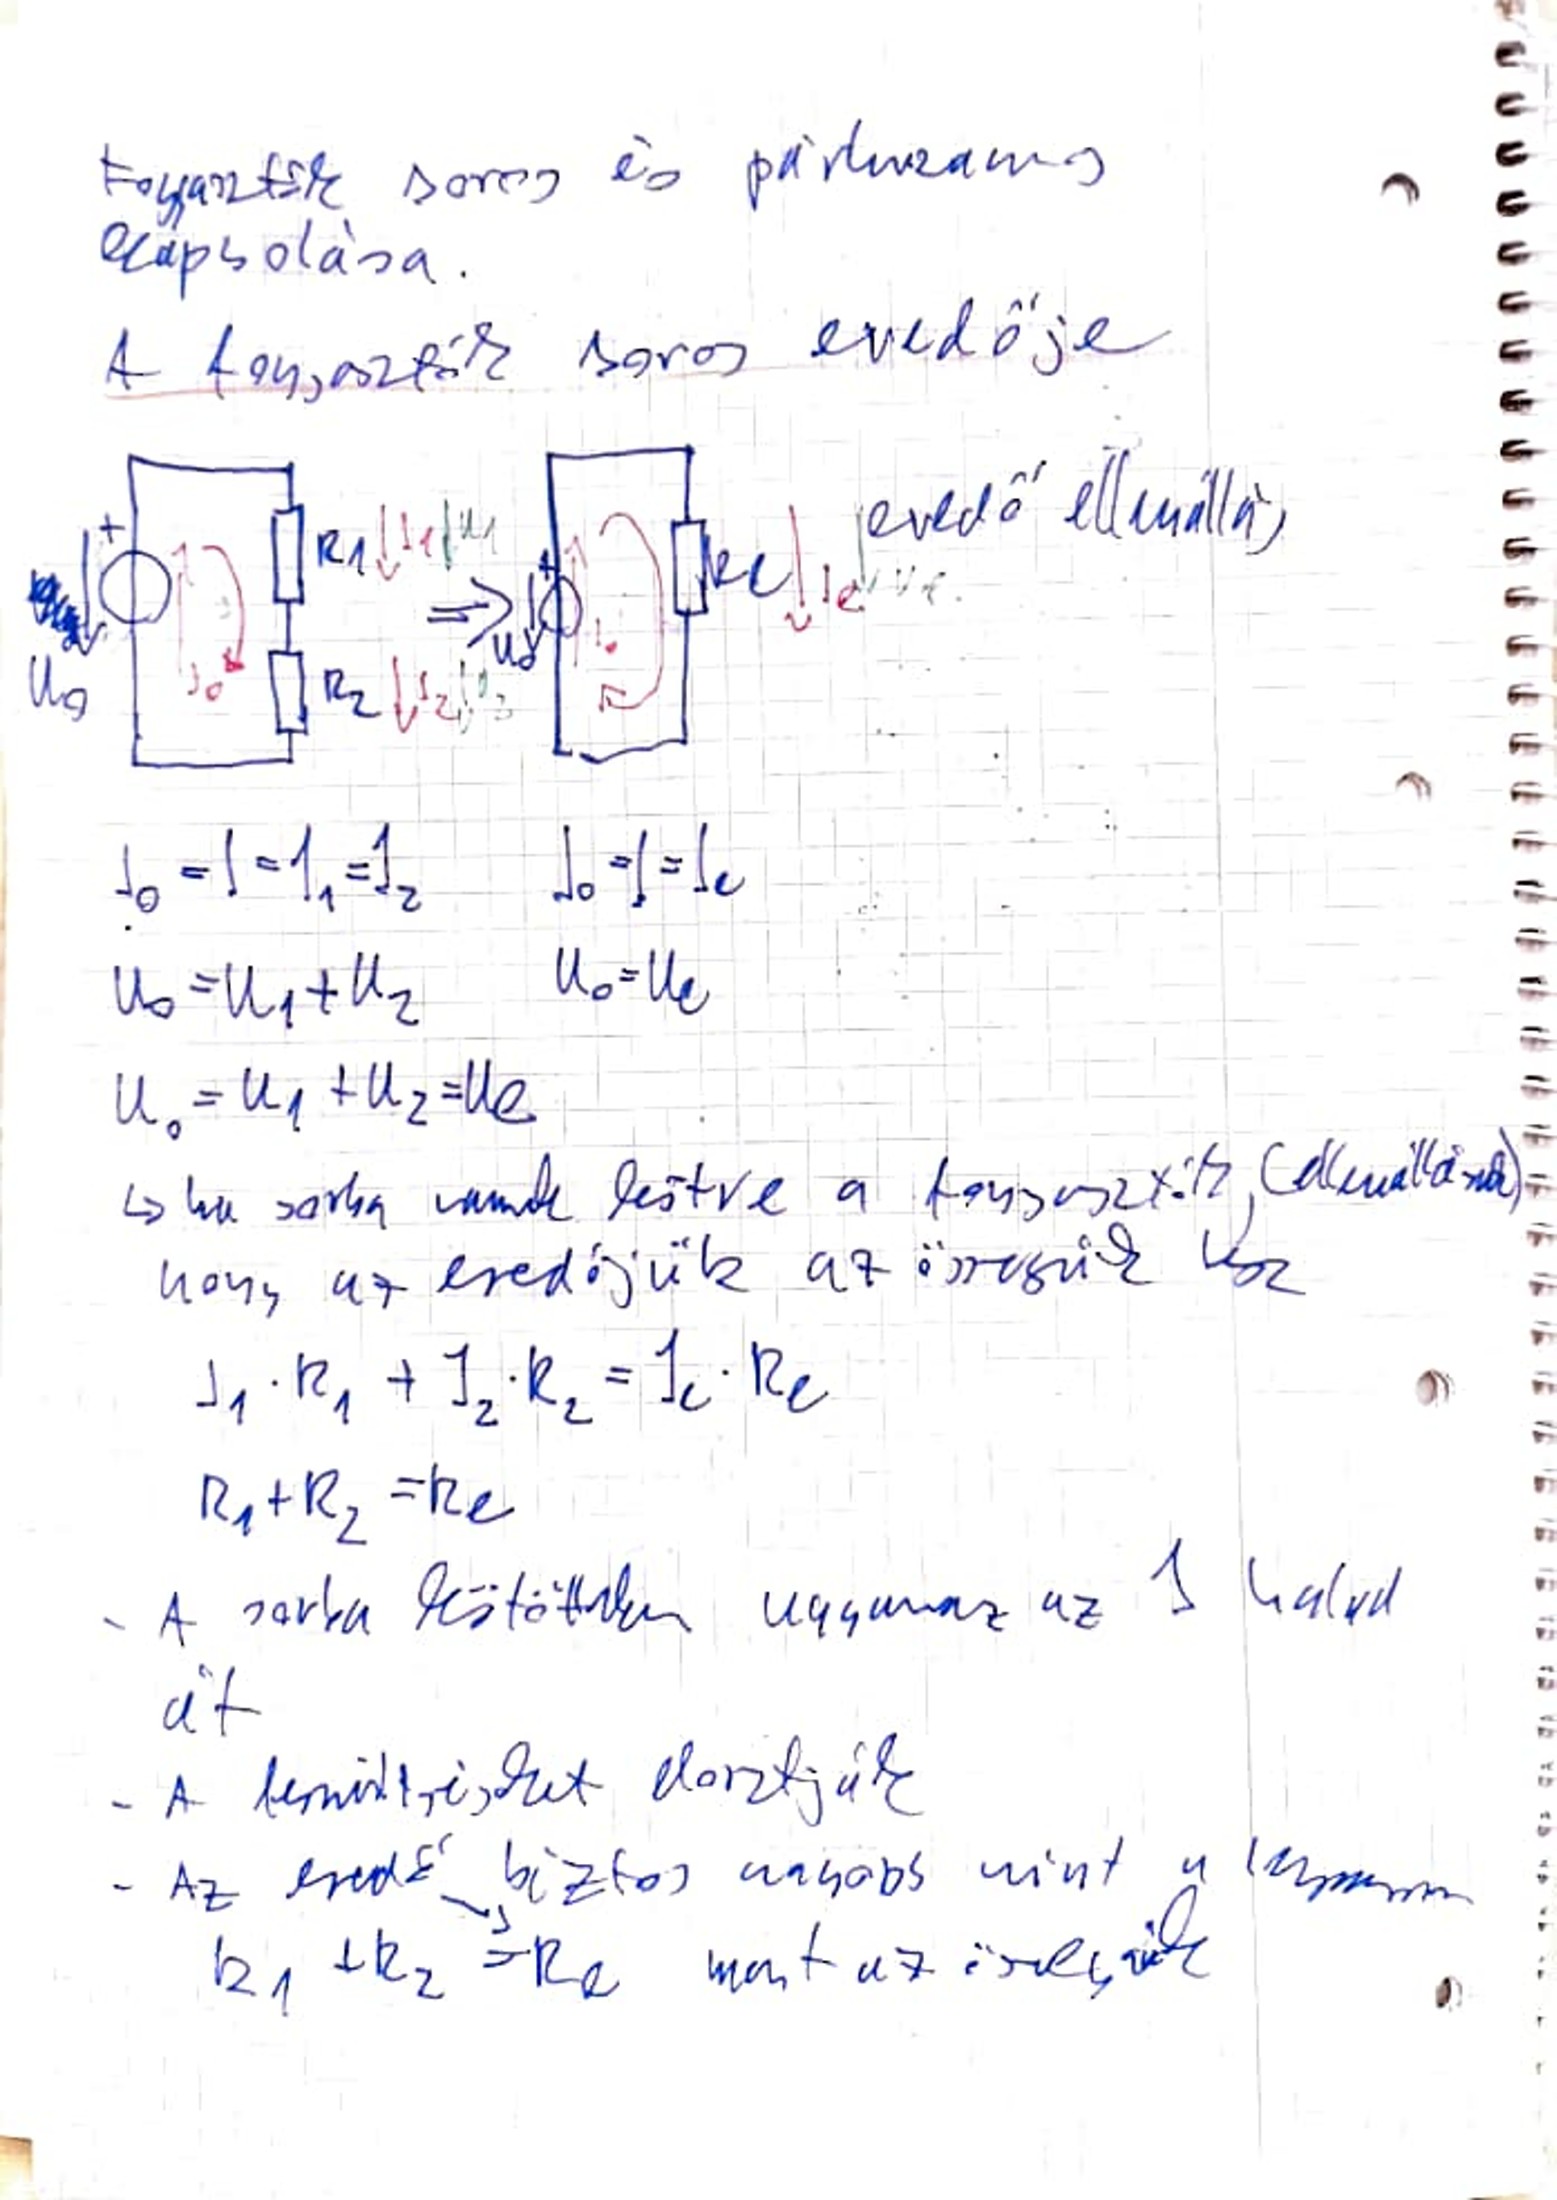 Fogyasztók soros és párhuzamos
kapcsolása.
A fogyasztók soros eredője
+ R1 I1 U1 + Re Ie Ue eredő ellenállás
U0 I0 R2 I2 U0 I0
I0 = I = I1 = I2 I0 = I = Ie
U0 = U1 + U2 U0 = Ue
U0 = U1 + U2 = Ue
↳ ha sorba vannak kötve a fogyasztók,
hogy az eredőjük az összegük lesz
I1 · R1 + I2 · R2 = Ie · Re
R1 + R2 = Re
- A sorba kötötteken ugyanaz az I halad
át
- A feszültségeket elosztják
- Az eredő biztos nagyobb mint a
R1 + R2 = Re mert az összegük